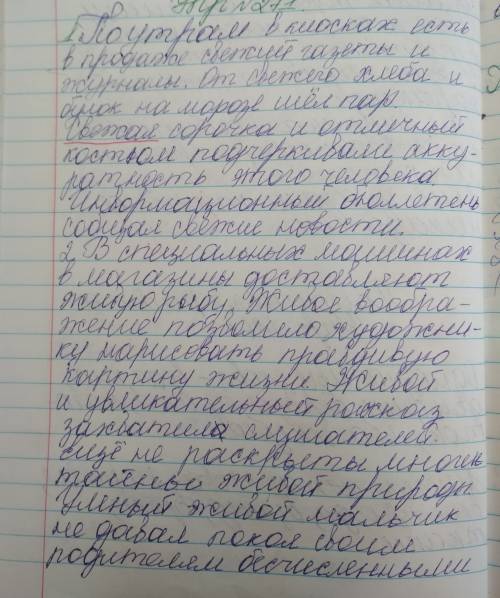 Упр № 271
1. По утрам в киосках есть
в продаже свежуй газеты и
журналы. От свежего хлеба и
булок на морозе шёл пар.
Свежая сорочка и отличный
костюм подчеркивали акку-
ратность этого человека
Информационный бюллетень
сообщал свежие новости.
2. В специальных машинах
в магазины доставляют
живую рыбу. Живое вообра-
жение позволило художни-
ку нарисовать правдивую
картину жизни. Живой
и увлекательный рассказ
захватила слушателей.
Ещё не раскрыты многие
тайны живой природы.
Умный живой мальчик
не давал покоя своим
родителям бесчисленными